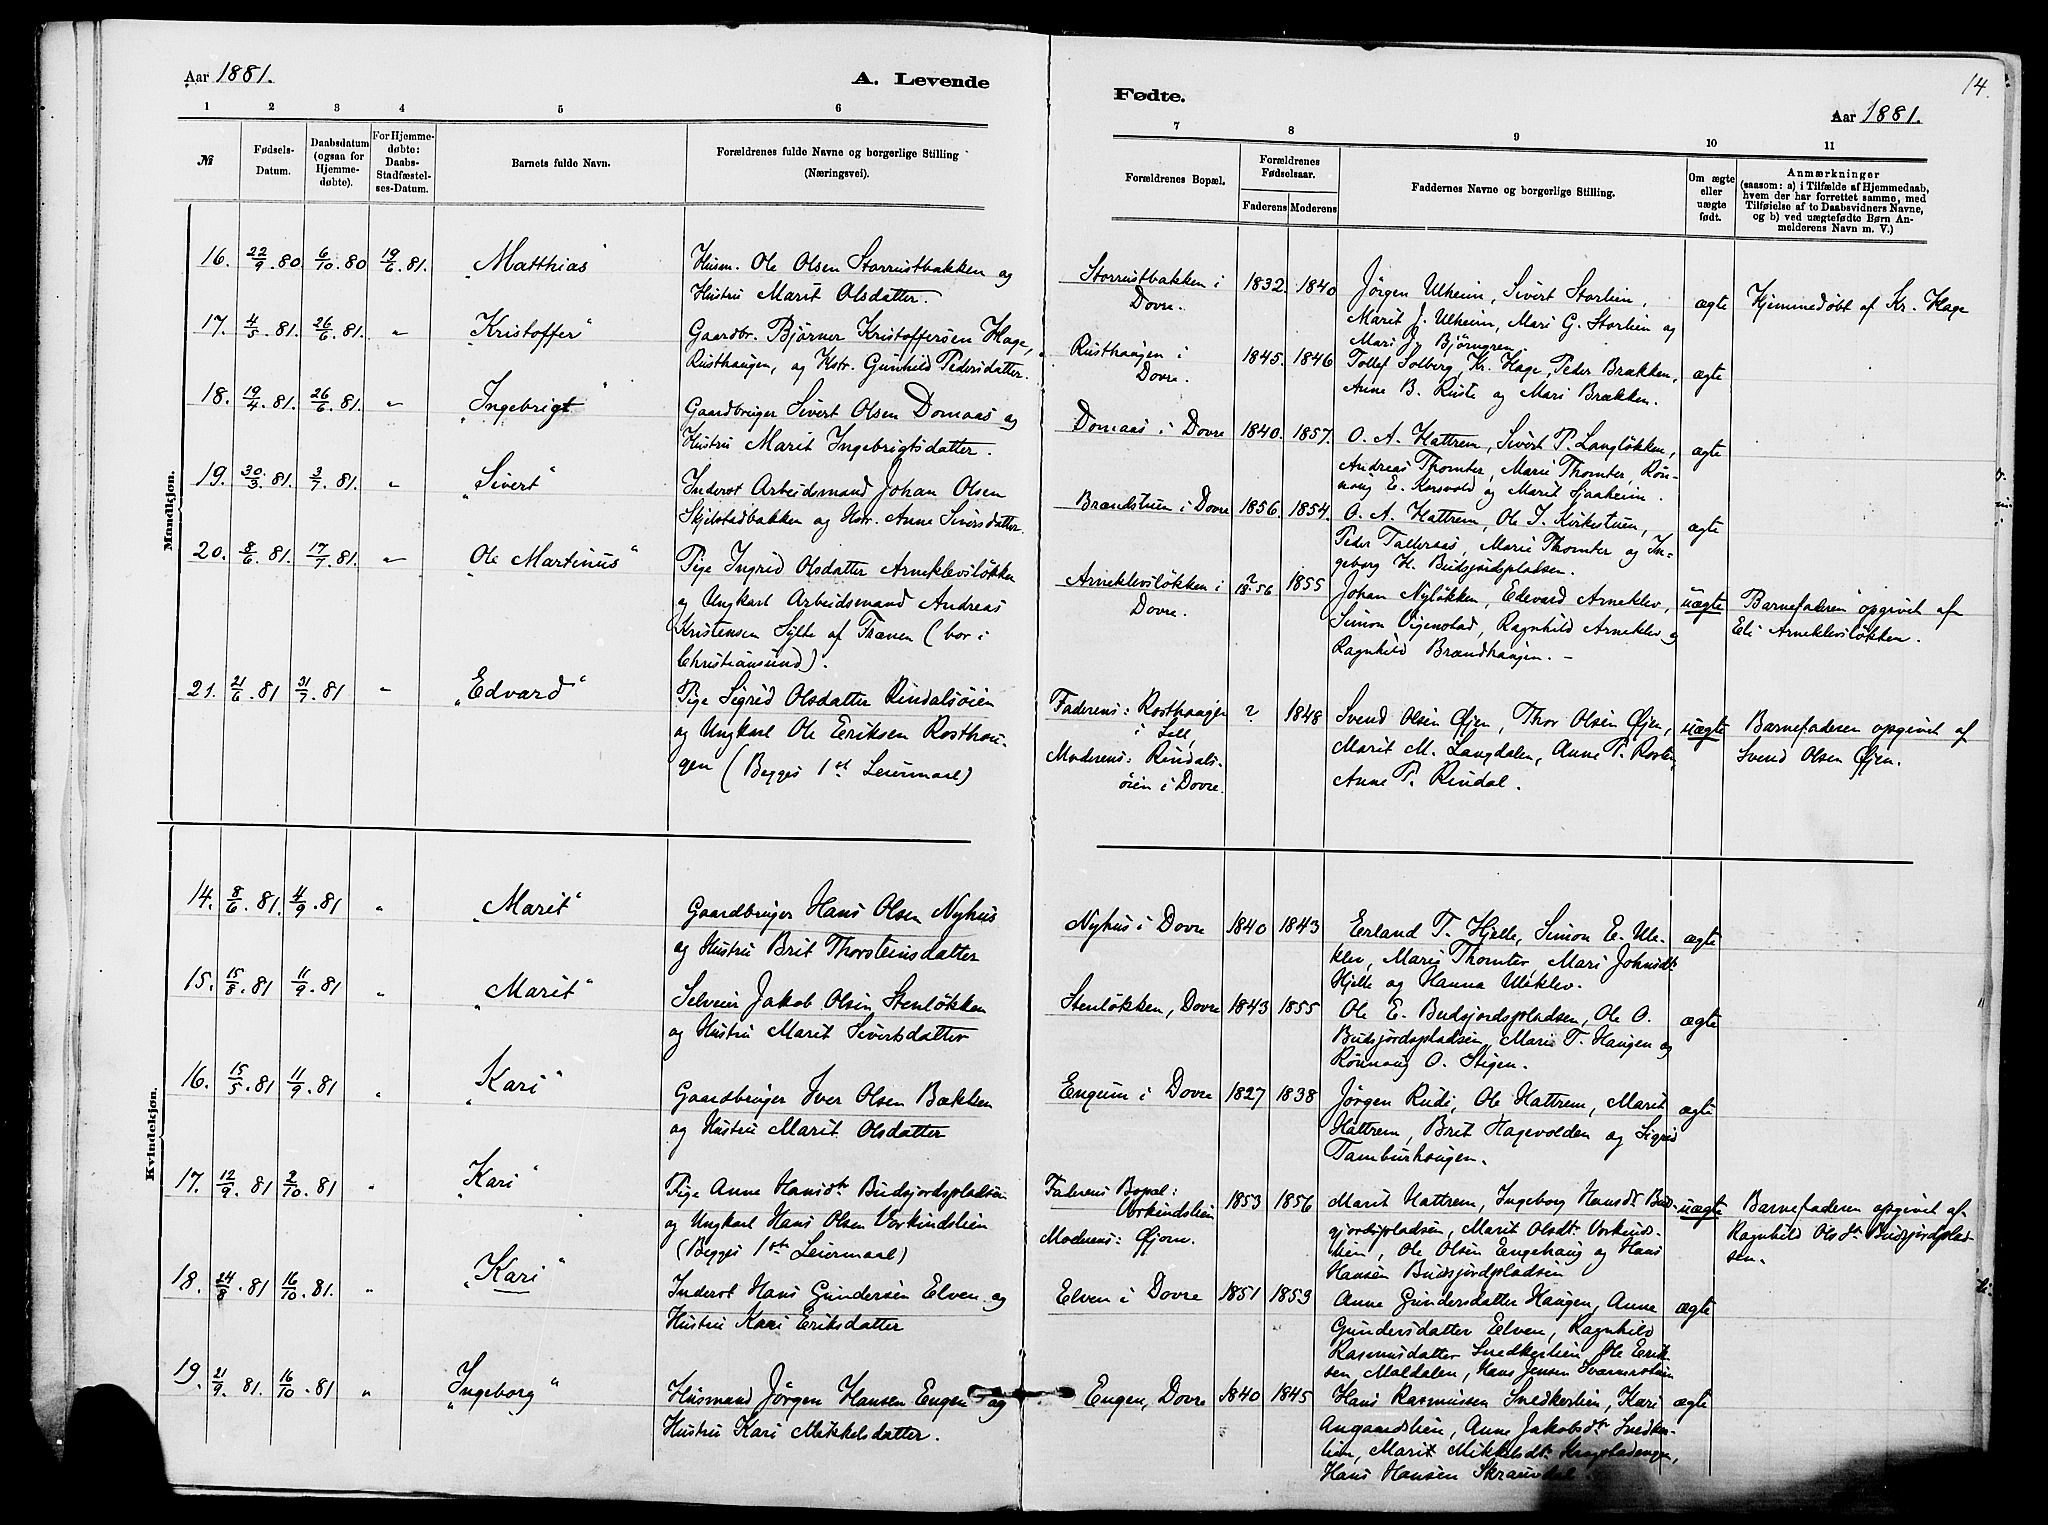 Aar 1881.
A. Levende
1 2 3 4 5 6
№
Fødsels-
Datum.
Daabsdatum
(ogsaa for
Hjemme-
døbte).
For Hjemme-
døbte:
Daabs-
Stadfæstel-
ses-Datum.
Barnets fulde Navn.
Forældrenes fulde Navne og borgerlige Stilling
(Næringsvei).
Mandkjøn.
16. 22/9 80 6/10 80 19/6 81. „Matthias“
Husm. Ole Olsen Storrustbakken og
Hustru Marit Olsdatter.
17. 4/5 81. 26/6 81. „ „Kristoffer“
Gaardbr. Bjørner Kristoffersen Hage,
Rusthaugen, og Hstr. Gunhild Pedersdatter.
18. 19/4 81. 26/6 81. „ „Ingebrigt“
Gaardbruger Sivert Olsen Domaas og
Hustru Marit Ingebrigtsdatter.
19. 30/3 81. 3/7 81. „ „Sivert“
Inderst Arbeidsmand Johan Olsen
Skjelstadbakken og Hstr. Anne Siversdatter.
20. 8/6 81. 17/7 81. „ „Ole Martinus“
Pige Ingrid Olsdatter Arneklevsløkken
og Ungkarl Arbeidsmand Andreas
Kristensen Sylte af Frænen (bor i
Christiansund).
21. 21/6 81 31/7 81 „ „Edvard“
Pige Sigrid Olsdatter Rindalsøien
og Ungkarl Ole Eriksen Rosthau-
gen (Begges 1st Leiermaal)
Kvindekjøn.
14. 8/6 81. 4/9 81 „ „Marit“
Gaardbruger Hans Olsen Nyhus
og Hustru Brit Thorsteinsdatter
15. 15/8 81 11/9 81 „ „Marit“
Selveier Jakob Olsen Stenløkken
og Hustru Marit Sivertsdatter
16. 15/5 81 11/9 81 „ „Kari“
Gaardbruger Iver Olsen Bækken
og Hustru Marit Olsdatter
17. 12/9 81 2/10 81 „ „Kari“
Pige Anne Hansdt. Budsjordspladsen
og Ungkarl Hans Olsen Vorkindslien
(Begges 1ste Leiermaal)
18. 24/8 81 16/10 81. „ „Kari“
Inderst Hans Gundersen Elven og
Hustru Kari Eriksdatter
19. 21/9 81. 16/10 81 „ „Ingeborg“
Husmand Jørgen Hansen Engen og
Hustru Kari Mikkelsdatter.
14.
Fødte.
Aar 1881.
7 8 9 10 11
Forældrenes Bopæl.
Forældrenes
Fødselsaar.
Faderens Moderens
Faddernes Navne og borgerlige Stilling.
Om ægte
eller
uægte
født.
Anmærkninger
(saasom: a) i Tilfælde af Hjemmedaab,
hvem der har forrettet samme, med
Tilføielse af to Daabsvidners Navne,
og b) ved uægtefødte Børn An-
melderens Navn m. V.)
Storrustbakken i
Dovre.
1832. 1840
Jørgen Ulheim, Sivert Storlien,
Marit J. Ulheim, Mari G. Storlien og
Mari Bjørngren.
ægte
Hjemmedøbt af Kr. Hage
Rusthaugen i
Dovre.
1845. 1846
Tollef Solberg, Kr. Hage, Peder Brækken,
Anne B. Ruste og Mari Brækken.
ægte
Domaas i Dovre 1840. 1857.
O. A. Hattrem, Sivert P. Langløkken,
Andreas Thomter, Marie Thomter, Røn-
naug E. Korsvold og Marit Sjaaheim.
ægte
Brændstuen i Dovre 1856. 1854.
O. A. Hattrem, Ole J. Kirkestuen,
Peder Talleraas, Marie Thomter og In-
geborg H. Budsjordspladsen.
ægte
Arneklevsløkken i
Dovre.
? 1856 1855
Johan Nyløkken, Edevard Arneklev,
Simon Vigenstad, Ragnhild Arneklev og
Ragnhild Brændhaugen. –
uægte
Barnefaderen opgivet af
Eli Arneklevsløkken.
Faderens: Rosthaugen
i Lell
Moderens: Rindals-
øien i Dovre.
? 1848
Svend Olsen Øjen, Thor Olsen Øjen,
Marit M. Langdalen, Anne P. Rosten,
Anne P. Rindal.
uægte
Barnefaderen opgivet af
Svend Olsen Øjen.
Nyhus i Dovre 1840 1843
Erland T. Hjelle, Simon E. Ule-
klev, Marie Thomter, Mari Johnsdt.
Hjelle og Hanna Uleklev.
ægte
Stenløkken, Dovre 1843 1855
Ole E. Budsjordspladsen, Ole O.
Budsjordspladsen, Marie T. Haugen og
Rønnaug O. Stigen.
ægte
Engum i Dovre 1827 1838
Jørgen Rudi, Ole Hattrem, Marit
Hattrem, Brit Hagevolden og Sigrid
Tamburhaugen.
ægte
Faderens Bopæl:
Vorkindslien
Moderens: Øjorn.
1853 1856
Marit Hattrem, Ingeborg Hansdt. Bud-
sjordspladsen, Marit Olsdt. Vorkinds-
lien, Ole Olsen Engehaug og Hans
Hansen Budsjordpladsen
uægte
Barnefaderen opgivet af
Ragnhild Olsdt. Budsjordplad-
sen.
Elven i Dovre 1851 1853
Anne Gundersdatter Haugen, Anne
Gundersdatter Elven, Ragnhild
Rasmusdatter Snedkerlien, Ole Erik-
sen Maldalen, Hans Jensen
ægte
Engen, Dovre 1840 1845
Hans Rasmussen Snedkerlien, Kari
Angaardslien, Anne Jakobsdt. Snedker-
lien, Marit Mikkelsdt.
Hans Hansen
ægte